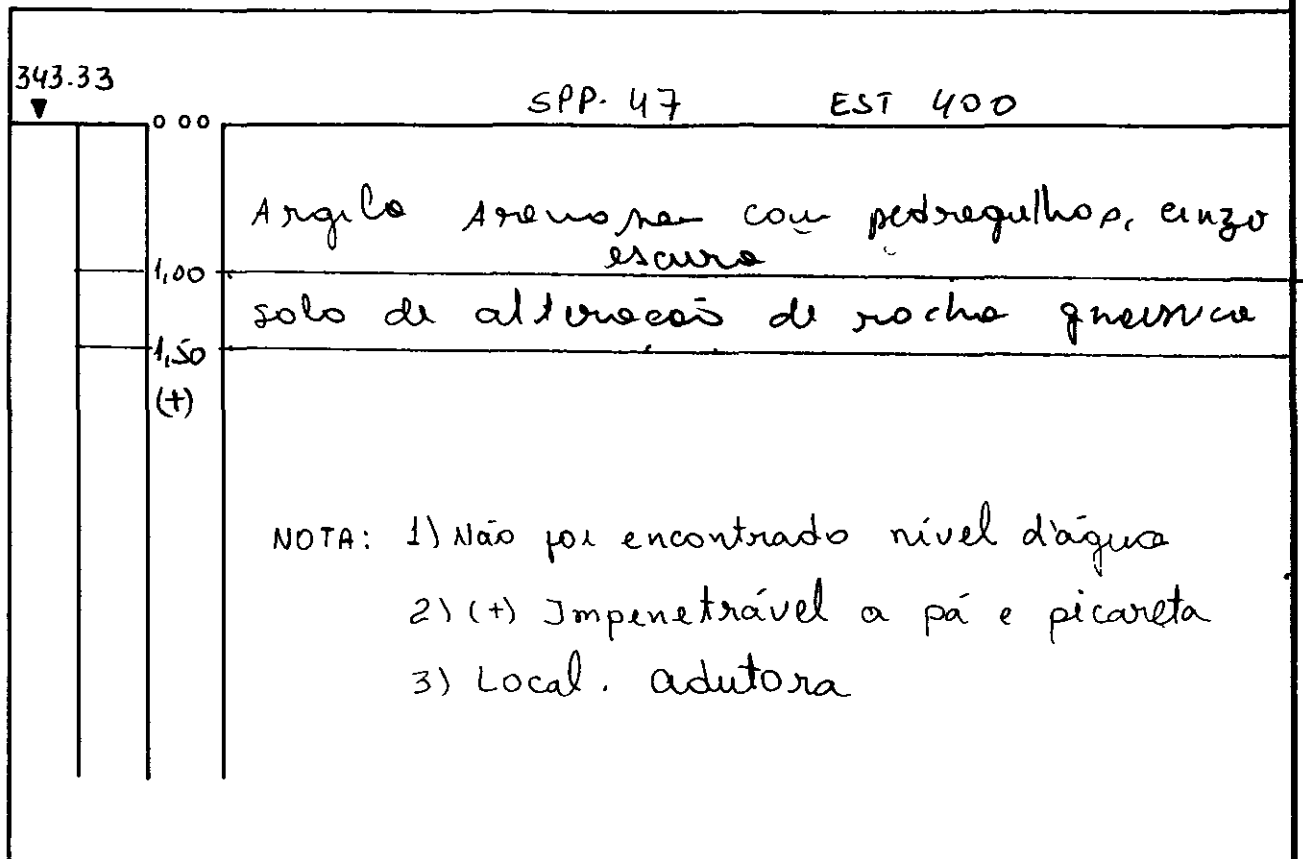 343.33
SPP. 47 EST 400
0 00
Argila Arenosa com pedregulhos, cinza
escura
1,00
solo de alteração de rocha gnaissica
1,50
(+)
NOTA: 1) Não foi encontrado nível d'água
2) (+) Impenetrável a pá e picareta
3) Local. adutora